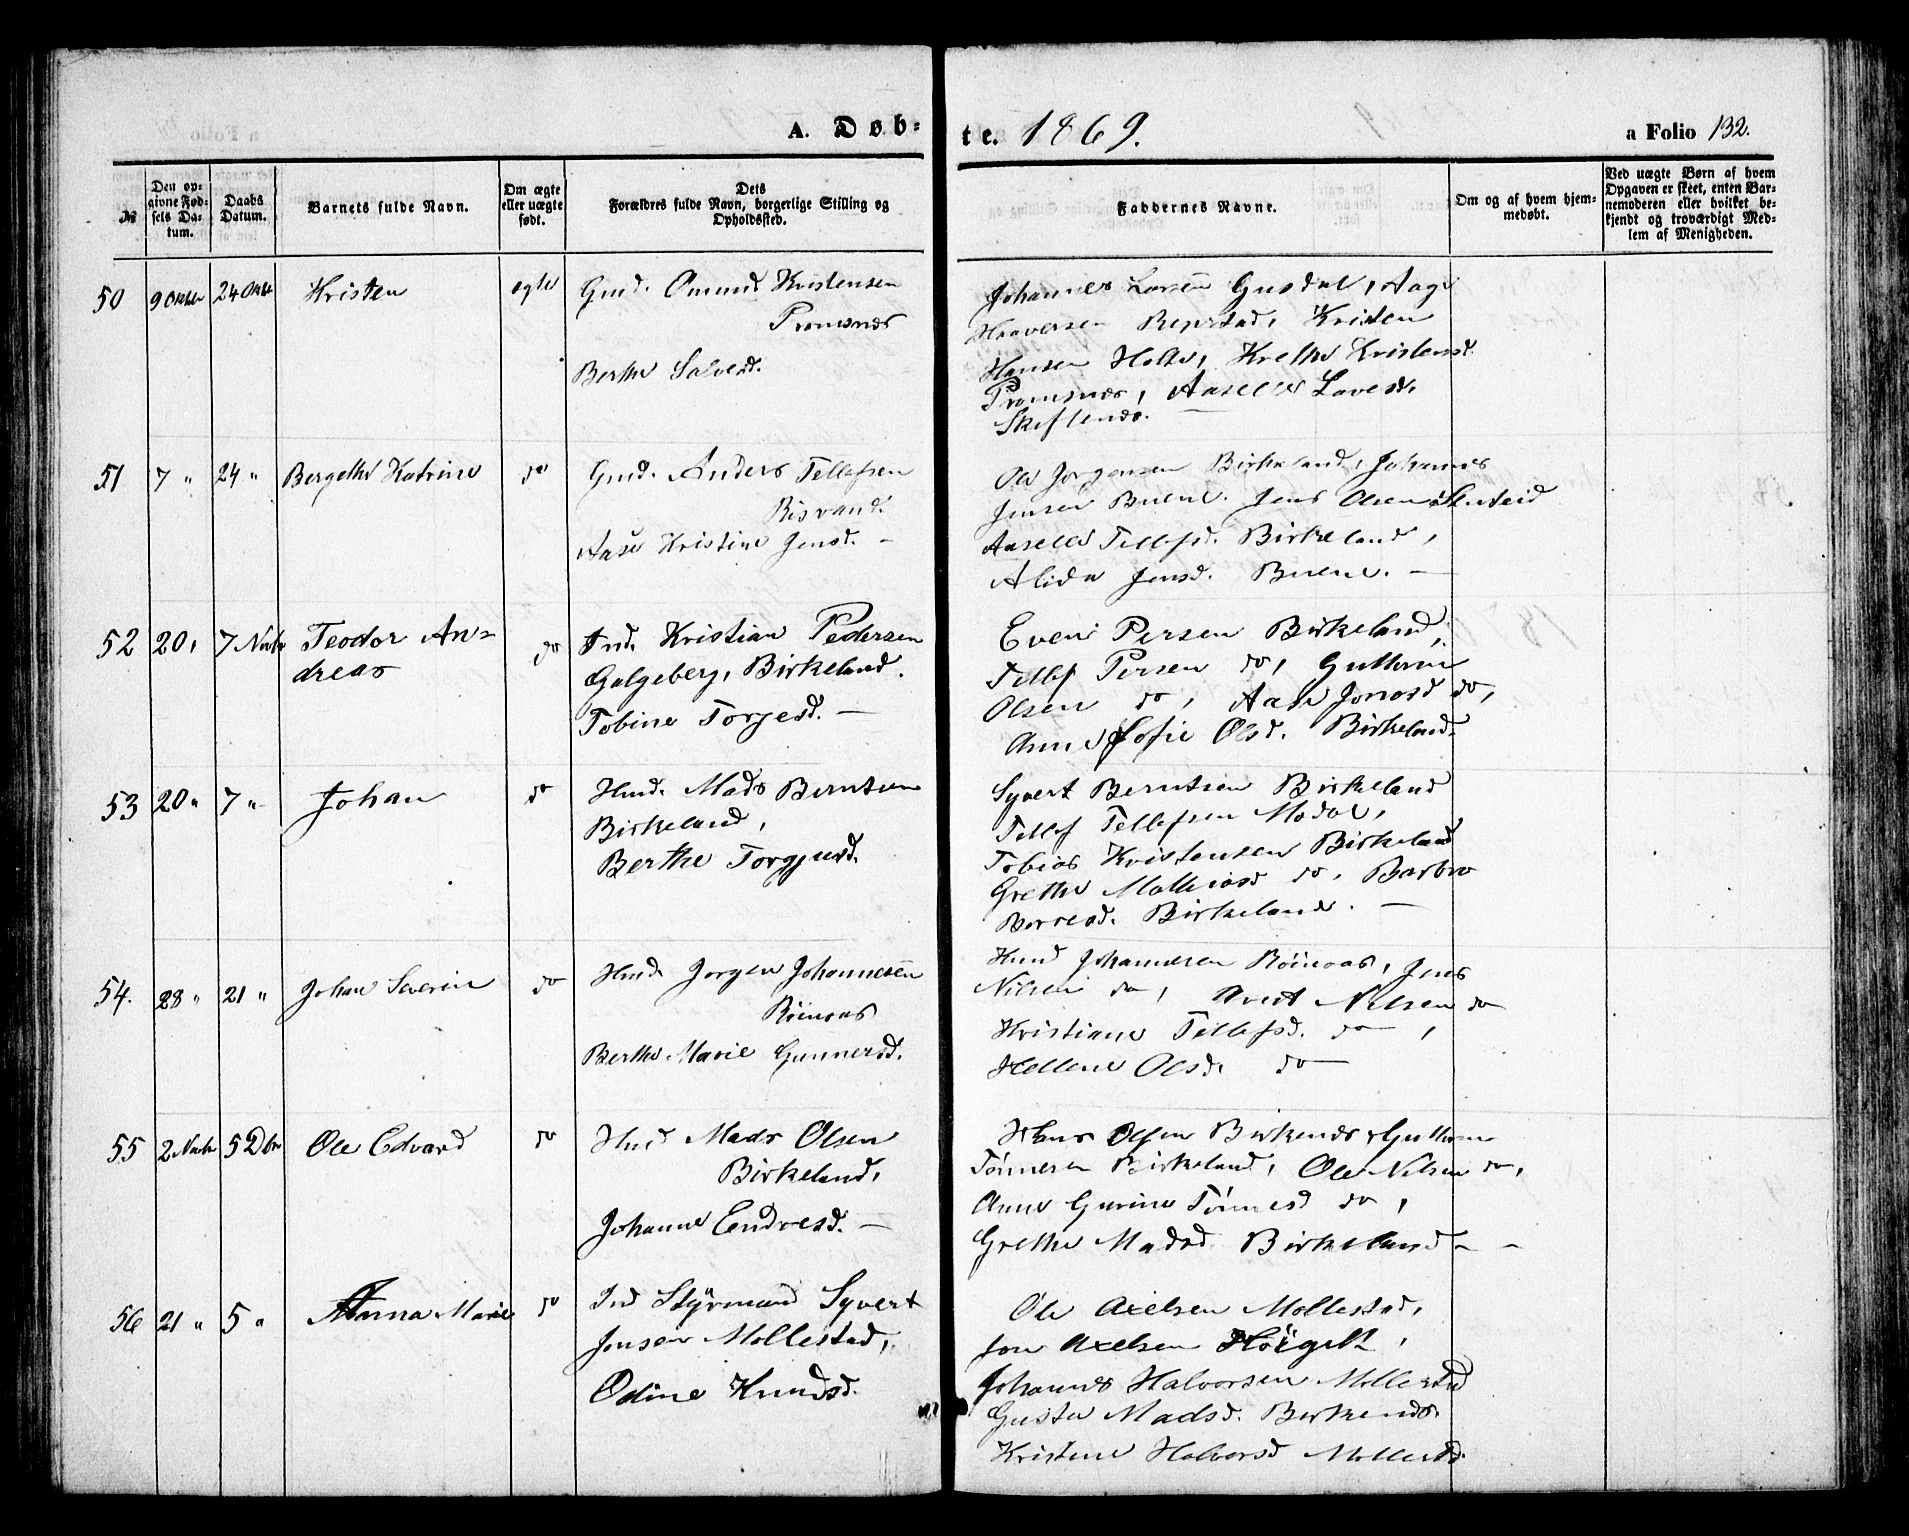 A. Døb-
te. 1869.
a Folio 132.
№
Den op-
givne Fød-
sels Da-
tum.
Daabs
Datum.
Barnets fulde Navn.
Om ægte
eller uægte
født.
Dets
Forældres fulde Navn, borgerlige Stilling og
Opholdssted.
Faddernes Navne.
Om og af hvem hjem-
medøbt.
Ved uægte Børn af hvem
Opgaven er skeet, enten Bar-
nemoderen eller hvilket be-
kjendt og troværdigt Med-
lem af Menigheden.
50 9 Oktbr 24 Oktb Kristen ægte
Gmd. Omund Kristensen
Promsnes
Berthe Salvesd.
Johannes Larsen Gusdal, Aage
Reperstad, Kristen
Hansen Holte, Grethe Kristensd.
Promsnes, Aaselle Lavesd.
Skiftenes.
51 7 " 24 " Bergethe Katrine do
Gmd. Anders Tellefsen
Risvand.
Aase Kristine Jensd. -
Ole Jorgensen Birkeland, Johannes
Jensen Buene. Jens Olsen
Aaselle Tellefsd. Birkeland,
Alida Jensd. Buene. -
52 20 " 7 Novbr Teodor An-
dreas do
Ind. Kristian Pedersen
Galgeberg, Birkeland.
Tobine Torjesd. -
Even Persen Birkeland,
Tellef Persen do, Guttorm
Olsen do, Aase Jonasd do,
Anne Sofie Olsd. Birkeland.
53 20 " 7 " Johan do
Hmd. Mads Berntsen
Birkeland,
Berthe Torgjusd.
Syvert Berntsen Birkeland
Tellef Tellefsen Modal,
Tobias Kristensen Birkeland
Grethe Mathiasd do, Barbro
Birkeland. -
54. 28 " 21 " Johan Severin do
Hmd. Jorgen Johannesen
Berthe Marie Gunnersd.
Knud Johannesen Jens
Nilsen do, Nilsen do
Kristiane Tellefsd. do,
Hellene Olsd. do
55 2 Novbr 5 Dbr Ole Edvard do
Hmd Mads Olsen
Birkeland,
Johanne Endresd. -
Hans Olsen Birkenes, Guttorm
Tønnesen Birkeland, Ole Nilsen do,
Anne Gurine Tønnesd do,
Grethe Madsd. Birkeland - -
56 21 " 5 " Anna Marie do
Ind Styrmand Syvert
Jensen Mollestad,
Odine Knudsd.
Ole Axelsen Mollestad,
Jon Axelsen Høigilt,
Johannes Halvorsen Mollestad
Gusta Madsd. Birkenes.
Kristine Halvorsd Mollestd.